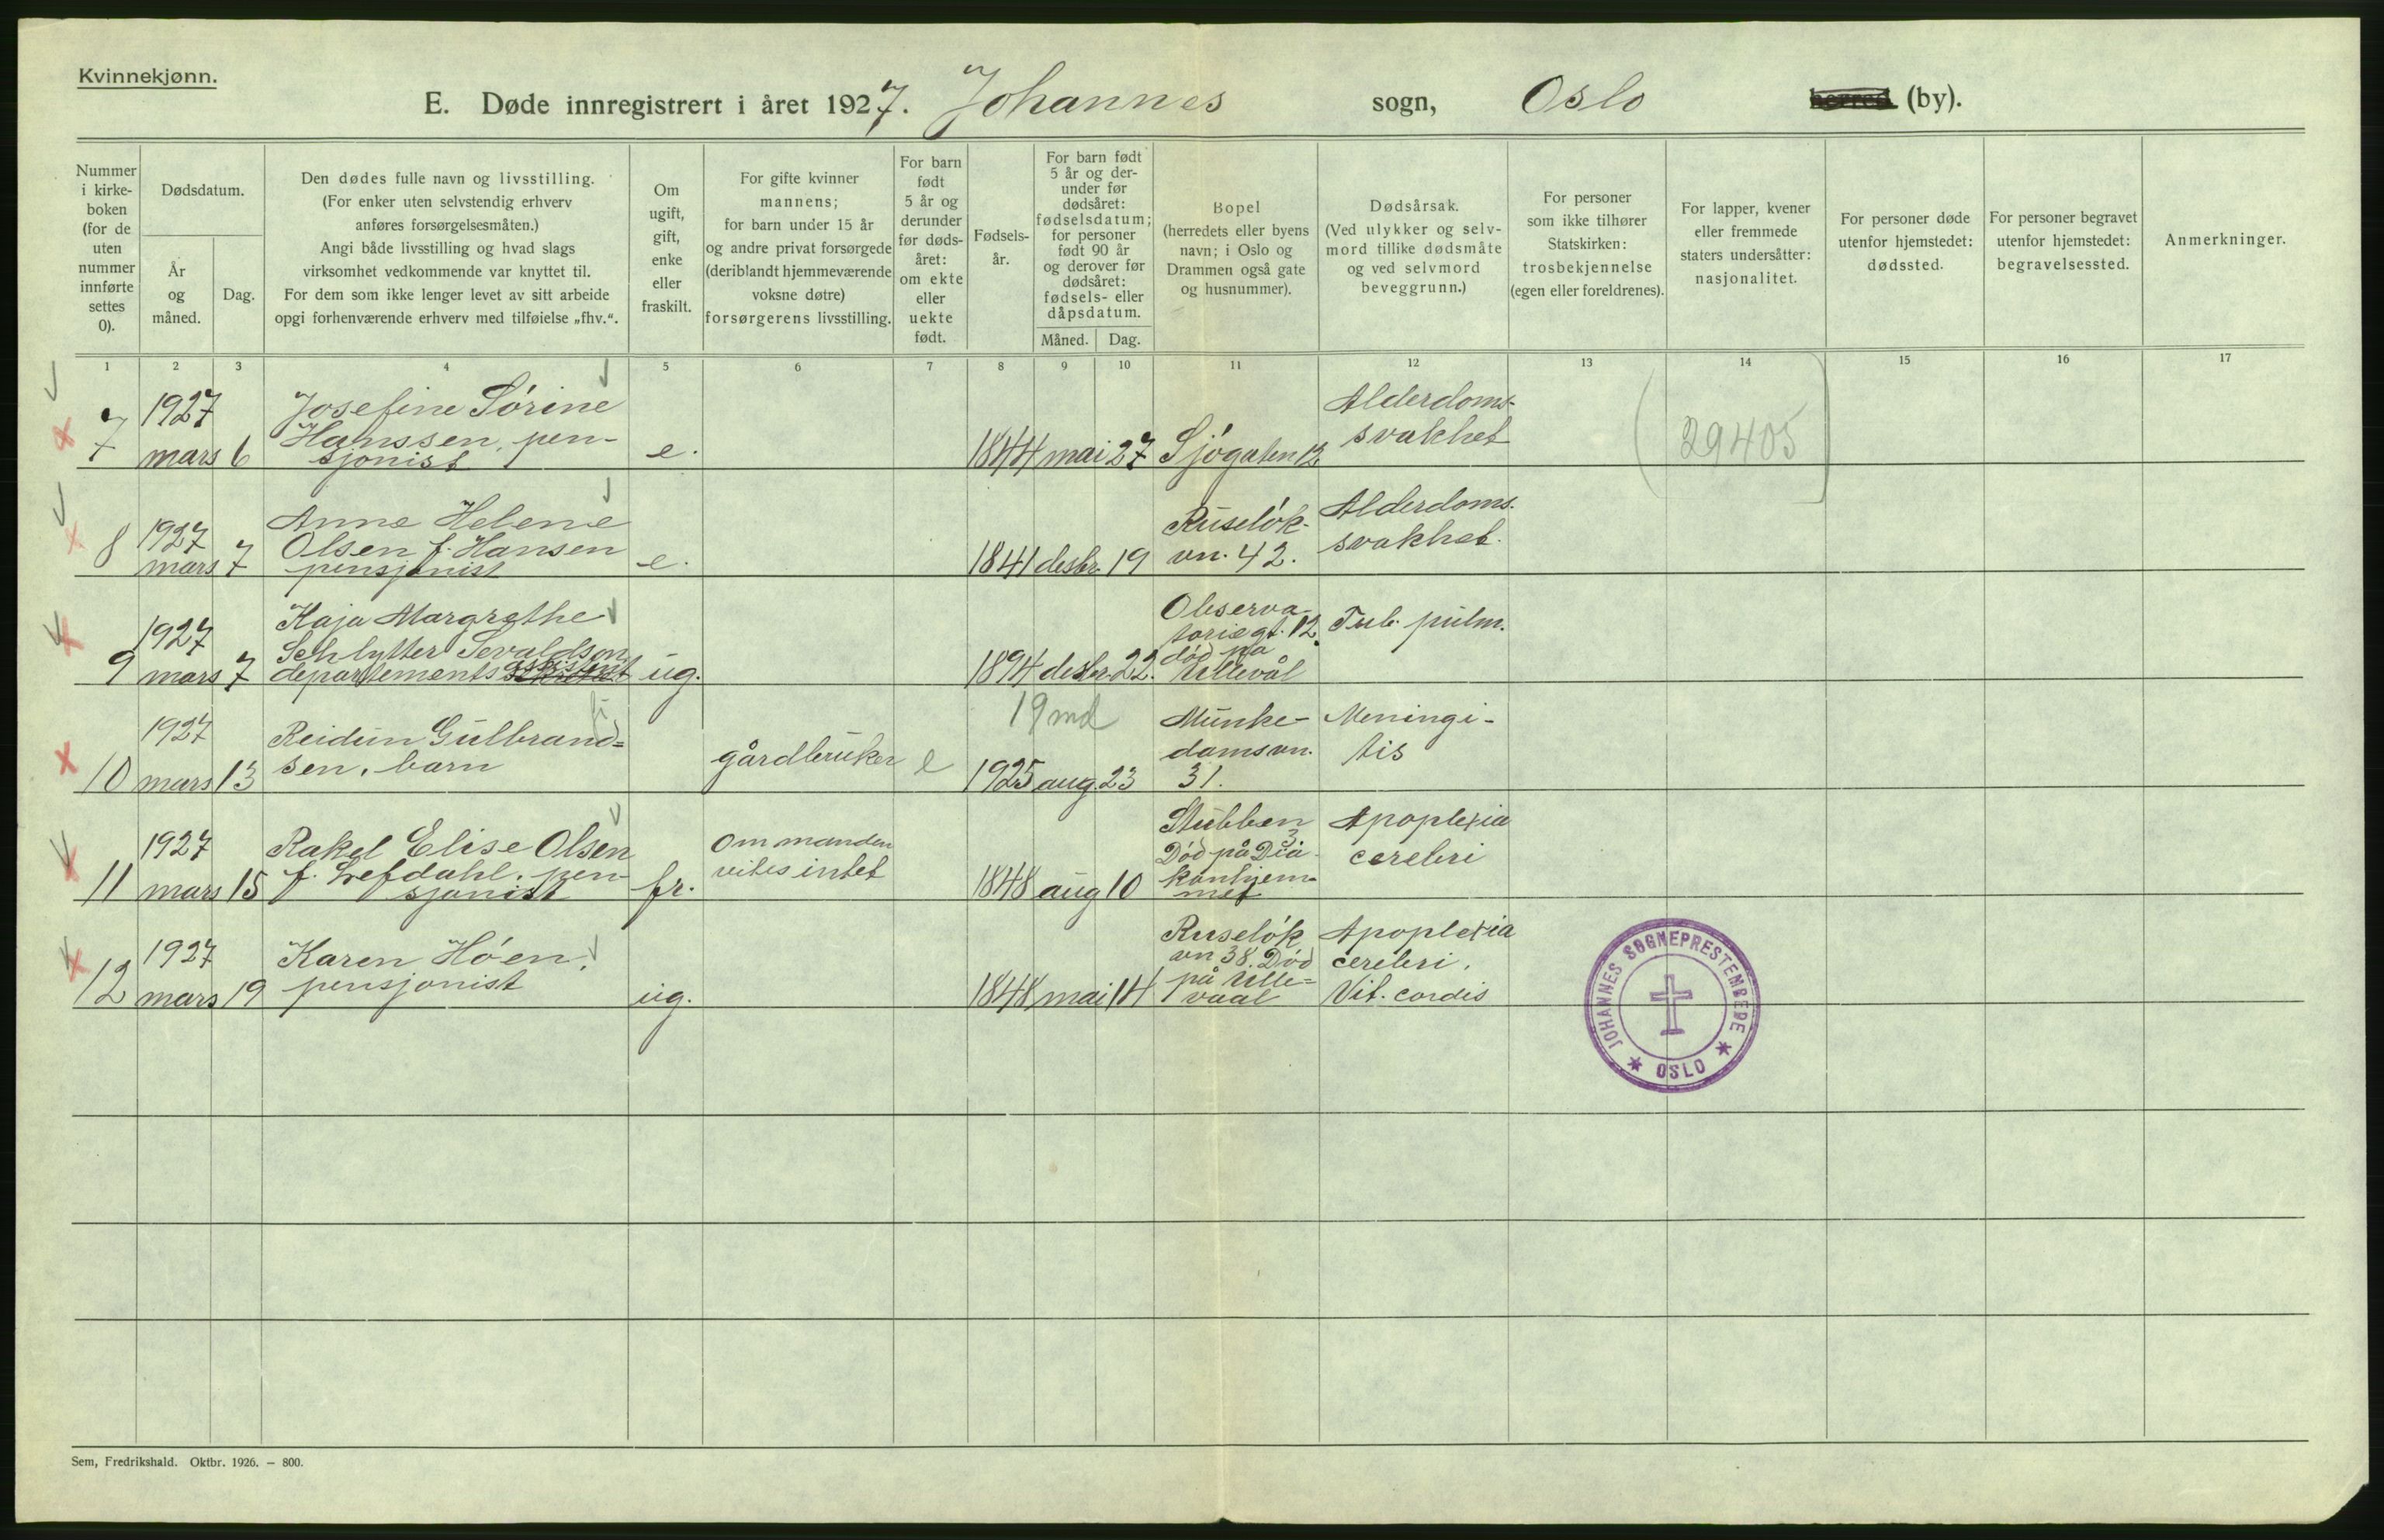 Kvinnekjønn.
E. Døde innregistrert i året 1927. Johannes sogn, Oslo herred (by).
Nummer
i kirke-
boken
(for de
uten
nummer
innførte
settes
0).
Dødsdatum.
År
og
måned.
Dag.
Den dødes fulle navn og livsstilling.
(For enker uten selvstendig erhverv
anføres forsørgelsesmåten.)
Angi både livsstilling og hvad slags
virksomhet vedkommende var knyttet til.
For dem som ikke lenger levet av sitt arbeide
opgi forhenværende erhverv med tilføielse „fhv.“.
Om
ugift,
gift,
enke
eller
fraskilt.
For gifte kvinner
mannens;
for barn under 15 år
og andre privat forsørgede
(deriblandt hjemmeværende
voksne døtre)
forsørgerens livsstilling.
For barn
født
5 år og
derunder
før døds-
året:
om ekte
eller
uekte
født.
Fødsels-
år.
For barn født
5 år og der-
under før
dødsåret:
fødselsdatum;
for personer
født 90 år
og derover før
dødsåret:
fødsels- eller
dåpsdatum.
Måned. Dag.
Bopel
(herredets eller byens
navn; i Oslo og
Drammen også gate
og husnummer).
Dødsårsak.
(Ved ulykker og selv-
mord tillike dødsmåte
og ved selvmord
beveggrunn.)
For personer
som ikke tilhører
Statskirken:
trosbekjennelse
(egen eller foreldrenes).
For lapper, kvener
eller fremmede
staters undersåtter:
nasjonalitet.
For personer døde
utenfor hjemstedet:
dødssted.
For personer begravet
utenfor hjemstedet:
begravelsessted.
Anmerkninger.
1 2 3 4 5 6 7 8 9 10 11 12 13 14 15 16 17
7
1927
mars 6
Josefine Sörine
Hanssen, pen-
sjonist
e.
1844 mai 27
Sjögaten 12
Alderdoms-
svakhet
29405
8
1927
mars 7
Anne Helene
Olsen f. Hansen
pensjonist
e.
1841 desbr. 19
Ruselök-
vn. 42.
Alderdoms-
svakhet.
9
1927
mars 7
Kaja Margrethe
Schlytter Sevaldson
departementsassistent
ug.
1894 desbr. 22.
Observa-
toriegt. 12.
död på
Ullevål
Tub. pulm.
10
1927
mars 13
Reidun Gulbrand=
sen, barn
gårdbruker
e
19 md
1925 aug. 23
Munke-
damsvn.
31.
Meningi-
tis
11
1927
mars 15
Rakel Elise Olsen
f. Lefdahl, pen-
sjonist
fr.
Om manden
vites intet
1848 aug 10
Stubben
3
Död på Dia-
konhjem-
met
Apoplexia
cerebri
12
1927
mars 19
Karen Höen,
pensjonist
ug.
1848 mai 14
Ruselök
vn 38. Död
på Ulle=
vaal
Apoplexia
cerebri,
Vit. cordis
JOHANNES SOGNEPRESTEMBEDE
* OSLO *
Sem, Fredrikshald. Oktbr. 1926. — 800.